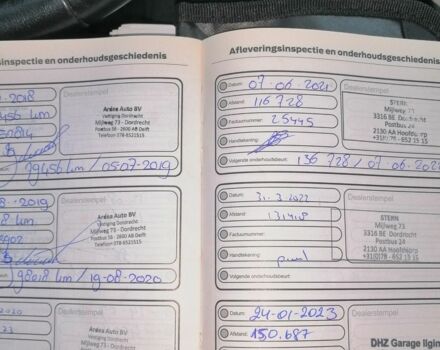 nsinspectie en onderhoudsgeschiedenis
Dealerstempel
-2018
456 km
Ardea Auto BV
Vestiging Dordrecht
Mijlweg 73 - Dordrecht
Postbus 56 - 2600 AB Delft
Telefoon 078-6521515
79456 km / 05-07-2019
Dealerstempel
-2019
8 km
Ardea Auto BV
Vestiging Dordrecht
Mijlweg 73 - Dordrecht
Postbus 56 - 2600 AB Delft
Telefoon 078-6521515
98018 km / 19-08-2020
2020
Dealerstempel
Ardea Auto BV
Afleveringsinspectie en onderhoudsgeschiedenis
Datum: 07-06-2021
Dealerstempel
Afstand: 116 728
Factuurnummer: 25445
Handtekening:
STERN
Mijlweg 73
3316 BE Dordrecht
Postbus 24
2130 AA Hoofddorp
+31(0)78 - 652 15 15
Volgende onderhoudsbeurt: 136 728 / 07-06-202
Datum: 31-3-2022
Dealerstempel
Afstand: 131408
Factuurnummer:
Handtekening:
STERN
Mijlweg 73
3316 BE Dordrecht
Postbus 24
2130 AA Hoofddorp
+31(0)78 - 652 15 15
Volgende onderhoudsbeurt:
Datum: 24-01-2023
Dealerstempel
Afstand: 150.687
DHZ Garage Ilgin